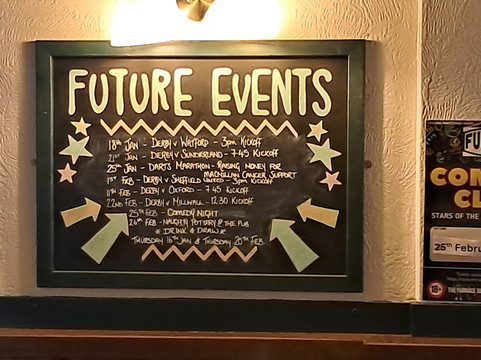 FUTURE EVENTS
18th JAN - DERBY V WATFORD - 3pm KICKOFF
21st JAN - DERBY V SUNDERLAND - 7.45 KICKOFF
25th JAN - DARTS MARATHON - RAISING MONEY FOR
MACMILLAN CANCER SUPPORT
1st FEB - DERBY V SHEFFIELD UNITED - 3pm KICKOFF
11th FEB - DERBY V OXFORD - 7.45 KICKOFF
22nd FEB - DERBY V MILLWALL - 12.30 KICKOFF
25th FEB - COMEDY NIGHT
26th FEB - NAUGHTY POTTERY @ THE PUB
* DRINK & DRAW *
THURSDAY 16th JAN & THURSDAY 20th FEB
FU
COM
CL
STARS OF THE
25th Febru
18+
THE FURNACE